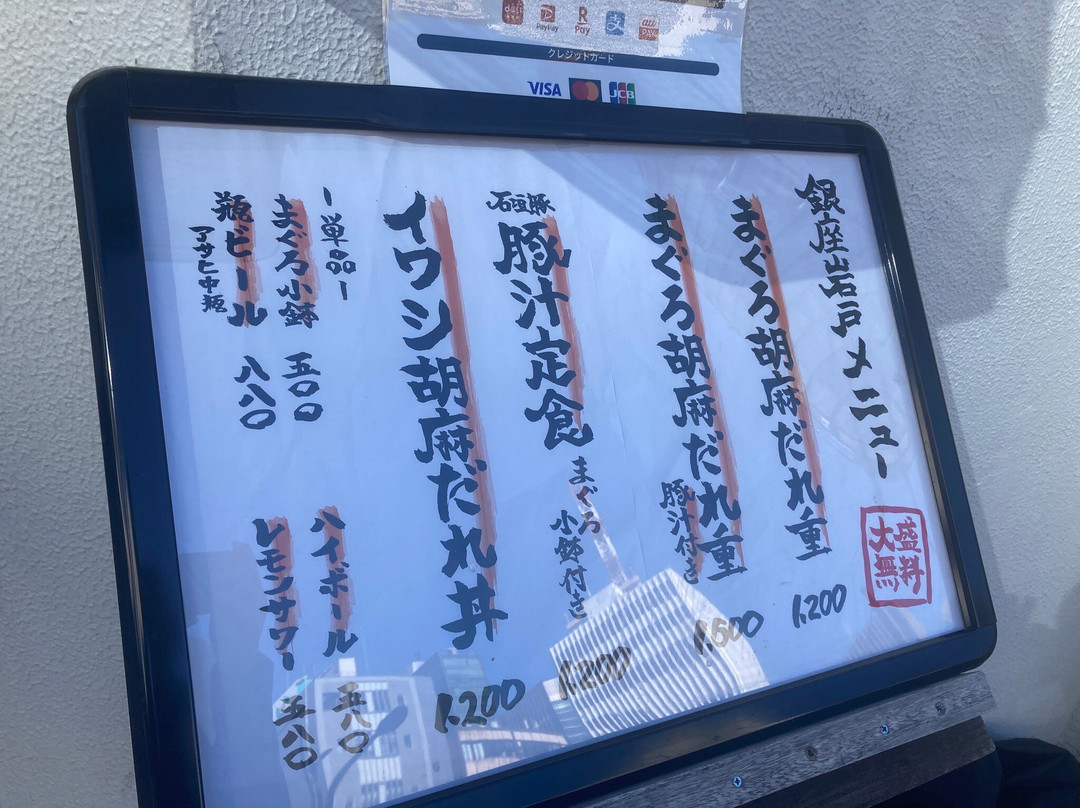 PayPay
R Pay
支
au PAY
クレジットカード
VISA
JCB
銀座岩戸メニュー
大盛無料
まぐろ胡麻だれ重
1,200
まぐろ胡麻だれ重
豚汁付き
1,600
石垣豚
豚汁定食
まぐろ小鉢付き
1,200
イワシ胡麻だれ丼
1,200
ー単品ー
まぐろ小鉢 五〇〇
瓶ビール 八八〇
アサヒ中瓶
ハイボール 五八〇
レモンサワー 五八〇